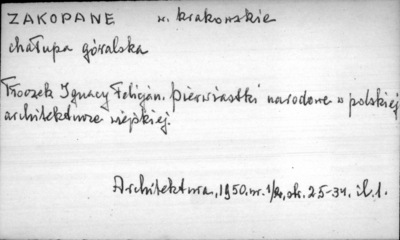 ZAKOPANE w. krakowskie
chałupa góralska
Tłoczek Ignacy Felicjan. Pierwiastki narodowe w polskiej
architekturze wiejskiej.
Architektura, 1950. nr. 1/2, str. 25-34. il. 1.